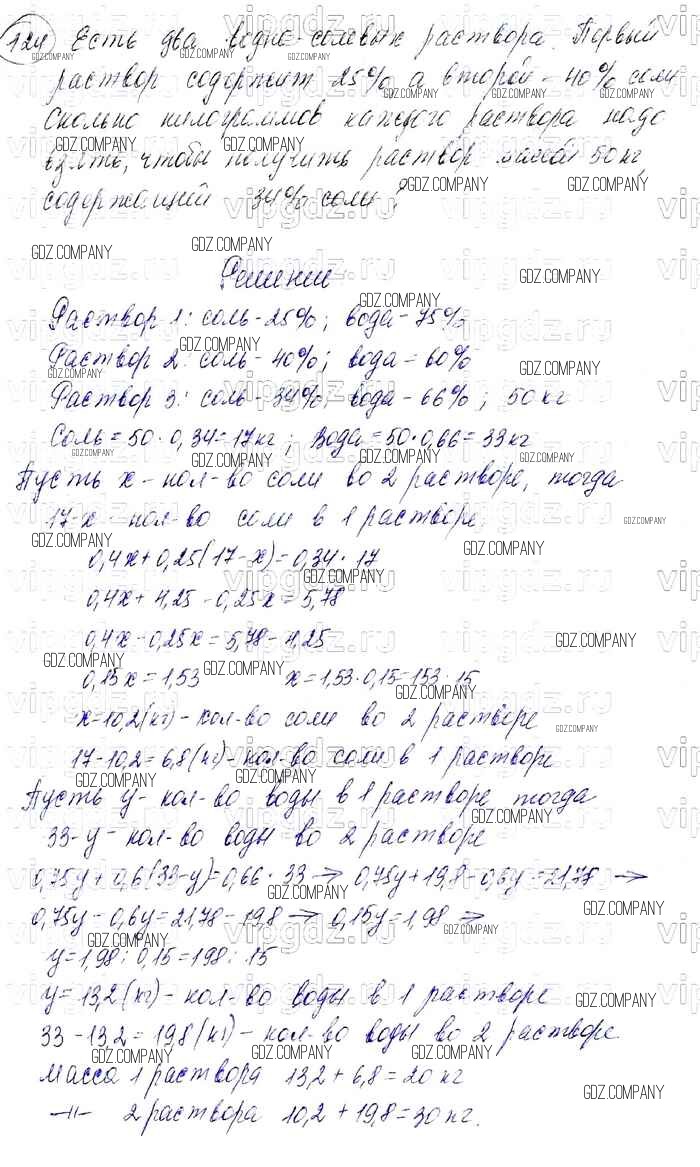 124 Есть два водно-солевых раствора. Первый
раствор содержит 25%, а второй - 40% соли
Сколько килограммов каждого раствора надо
взять, чтобы получить раствор массой 50 кг,
содержащий 34% соли?
Решение
Раствор 1: соль-25%; вода-75%
Раствор 2: соль-40%; вода-60%
Раствор 3: соль-34%; вода-66%; 50 кг
Соль = 50·0,34=17кг; Вода=50·0,66=33кг
Пусть x-кол-во соли во 2 растворе, тогда
17-x-кол-во соли в 1 растворе
0,4x+0,25(17-x)=0,34·17
0,4x+4,25-0,25x=5,78
0,4x-0,25x=5,78-4,25
0,15x=1,53 x=1,53·0,15=153·15
x=10,2(кг)-кол-во соли во 2 растворе
17-10,2=6,8(кг)-кол-во соли в 1 растворе
Пусть y-кол-во воды в 1 растворе тогда
33-y-кол-во воды во 2 растворе
0,75y+0,6(33-y)=0,66·33→ 0,75y+19,8-0,6y=21,78→
0,75y-0,6y=21,78-19,8→ 0,15y=1,98→
y=1,98:0,15=198:15
y=13,2(кг)-кол-во воды в 1 растворе
33-13,2=19,8(кг)-кол-во воды во 2 растворе
Масса 1 раствора 13,2+6,8=20 кг
-//- 2 раствора 10,2+19,8=30 кг.
GDZ.COMPANY
vipgdz.ru